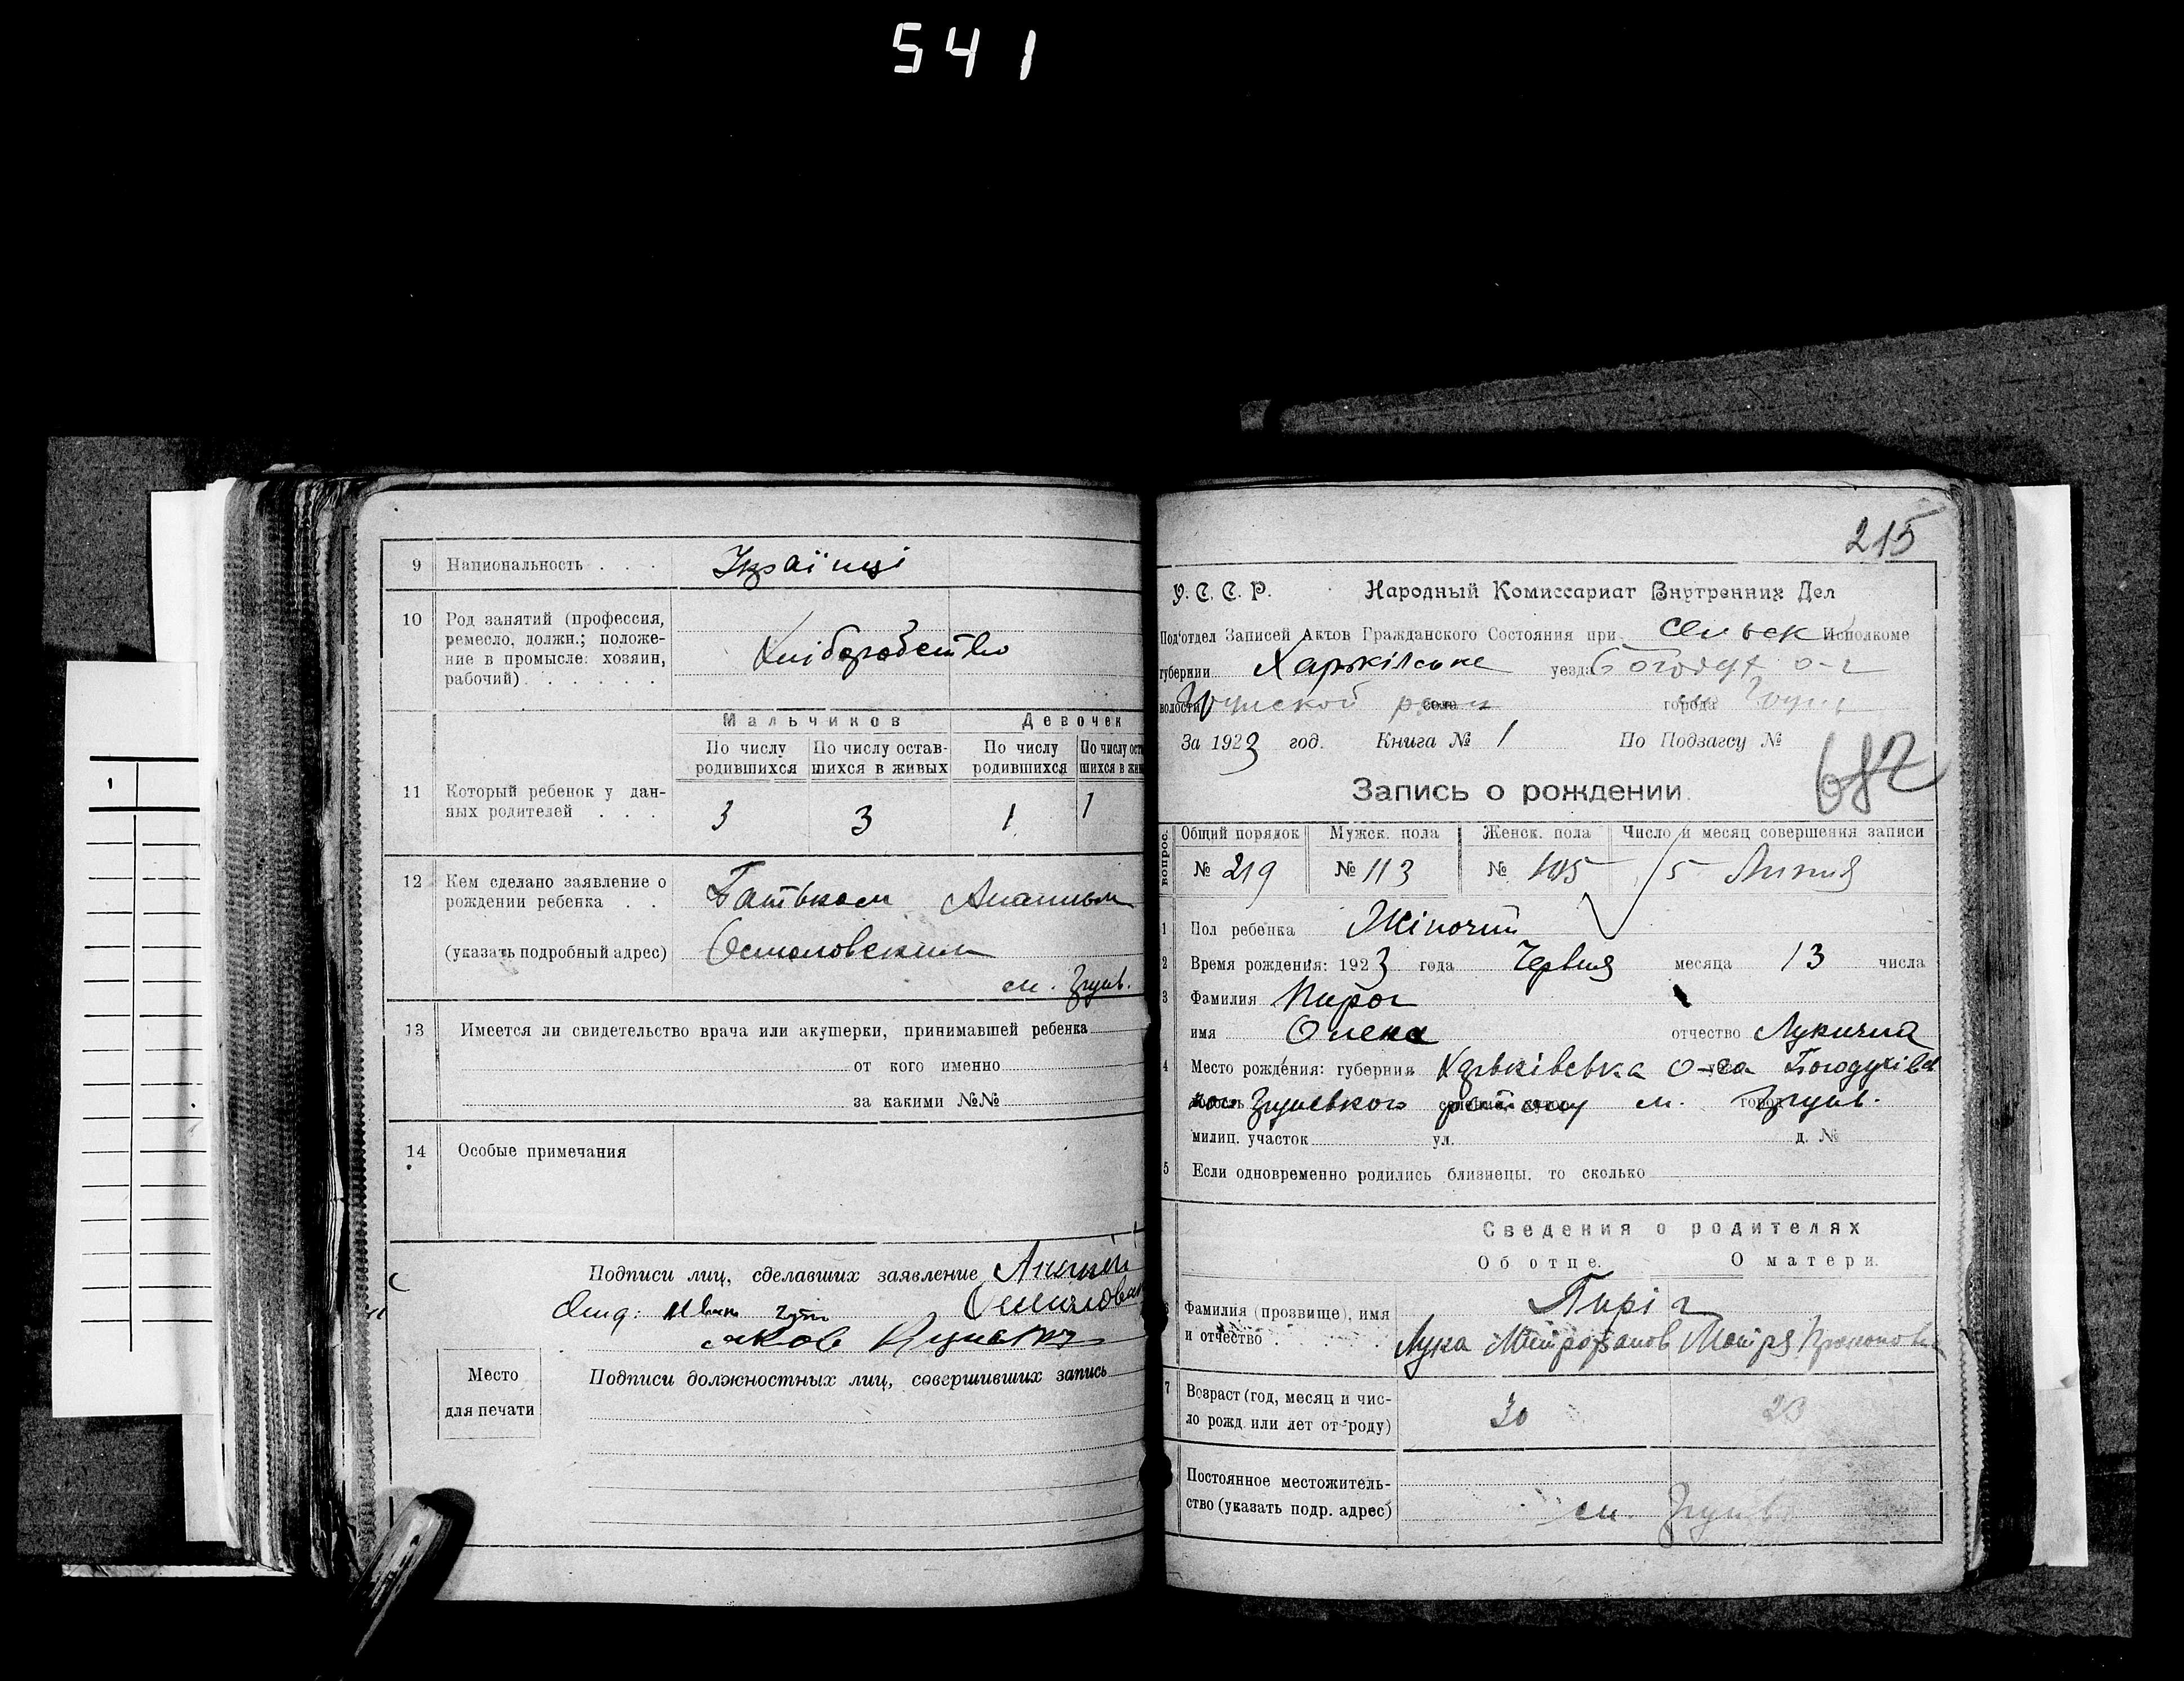 541
9 Национальность . . . Українці
10 Род занятий (профессия,
ремесло, должн.; положе-
ние в промысле: хозяин,
рабочий) . . . . . .
Хліборобство
Мальчиков Девочек
По числу родившихся По числу остав-шихся в живых По числу родившихся По числу
11 Который ребенок у дан-
ных родителей . . .
3 3 1 1
12 Кем сделано заявление о
рождении ребенка . .
Батьком
(указать подробный адрес)
13 Имеется ли свидетельство врача или акушерки, принимавшей ребенка
от кого именно
за какими №№
14 Особые примечания
Подписи лиц, сделавших заявление
Место
для печати
Подписи должностных лиц, совершивших запись
215
У. С. С. Р. Народный Комиссариат Внутренних Дел
Под'отдел Записей Актов Гражданского Состояния при Исполкоме
губернии уезда Богодух о-г
волости села города
За 1923 год. Книга № 1 По Подзагсу №
682
Запись о рождении.
вопрос. Общий порядок Мужск. пола Женск. пола Число и месяц совершения записи
№ 219 № 113 № 105 5 Липня
1 Пол ребенка Жіночий
2 Время рождения: 1923 года Червня месяца 13 числа
3 Фамилия Пирог
имя Олена отчество Лукична
4 Место рождения: губерния Харьківська о-га Богодухівсь
м.
милиц. участок ул. д. №
5 Если одновременно родились близнецы, то сколько
Сведения о родителях
Об отце. О матери.
Пиріг
6 Фамилия (прозвище), имя
и отчество Лука Митрофанов Мотря
7 Возраст (год, месяц и чис-
ло рожд. или лет от роду) 30 23
Постоянное местожитель-
ство (указать подр. адрес) м.